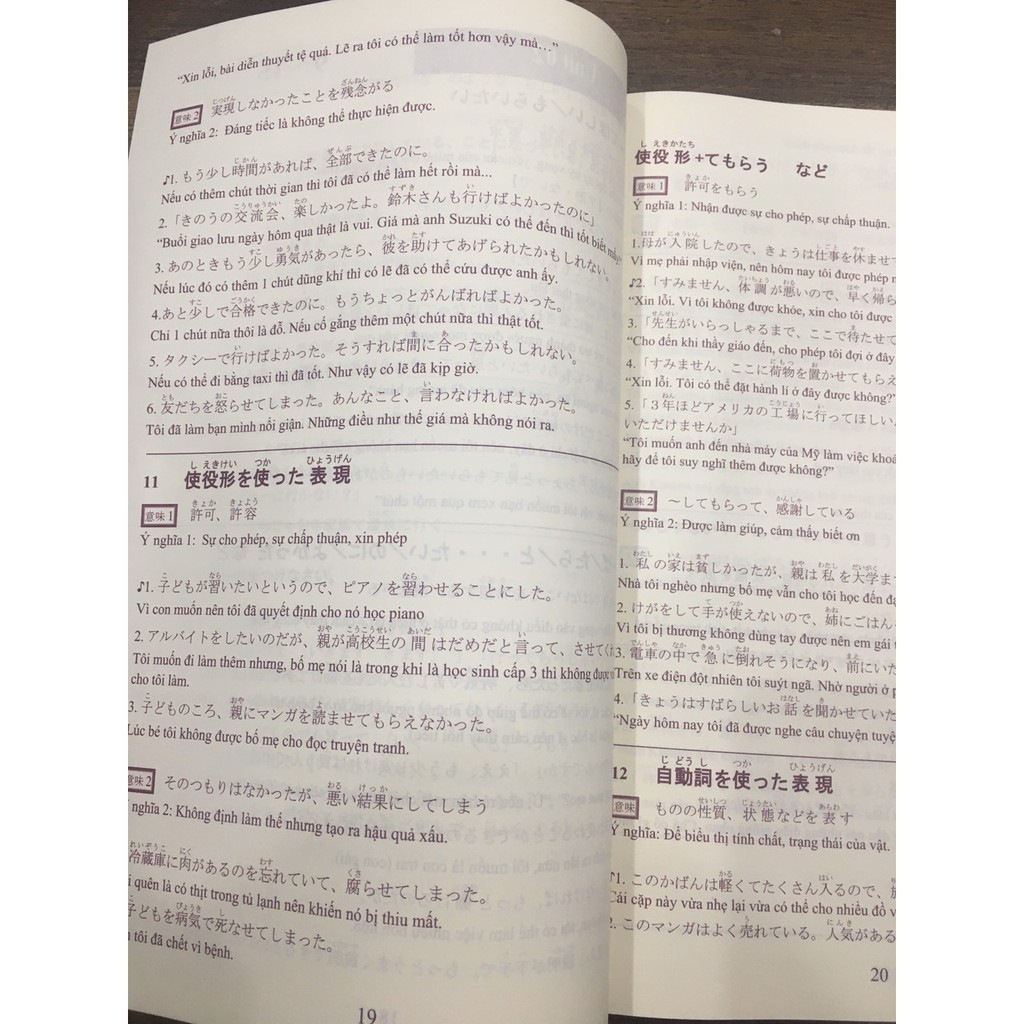 “Xin lỗi, bài diễn thuyết tệ quá. Lẽ ra tôi có thể làm tốt hơn vậy mà…”
意味2 実現しなかったことを残念がる
Ý nghĩa 2: Đáng tiếc là không thể thực hiện được.
♪1. もう少し時間があれば、全部できたのに。
Nếu có thêm chút thời gian thì tôi đã có thể làm hết rồi mà...
2.「きのうの交流会、楽しかったよ。鈴木さんも行けばよかったのに」
“Buổi giao lưu ngày hôm qua thật là vui. Giá mà anh Suzuki có thể đến thì tốt biết mấy”
3. あのときもう少し勇気があったら、彼を助けてあげられたかもしれない。
Nếu lúc đó có thêm 1 chút dũng khí thì có lẽ đã có thể cứu được anh ấy.
4.あと少しで合格できたのに。もうちょっとがんばればよかった。
Chỉ 1 chút nữa thôi là đỗ. Nếu cố gắng thêm một chút nữa thì thật tốt.
5. タクシーで行けばよかった。そうすれば間に合ったかもしれない。
Nếu có thể đi bằng taxi thì đã tốt. Như vậy có lẽ đã kịp giờ.
6.友だちを怒らせてしまった。あんなこと、言わなければよかった。
Tôi đã làm bạn mình nổi giận. Những điều như thế giá mà không nói ra.
11 使役形を使った表現
意味1 許可、許容
Ý nghĩa 1: Sự cho phép, sự chấp thuận, xin phép
♪1. 子どもが習いたいというので、ピアノを習わせることにした。
Vì con muốn nên tôi đã quyết định cho nó học piano
2. アルバイトをしたいのだが、親が高校生の間はだめだと言って、させてく
Tôi muốn đi làm thêm nhưng, bố mẹ nói là trong khi là học sinh cấp 3 thì không được
cho tôi làm.
3. 子どものころ、親にマンガを読ませてもらえなかった。
Lúc bé tôi không được bố mẹ cho đọc truyện tranh.
意味2 そのつもりはなかったが、悪い結果にしてしまう
nghĩa 2: Không định làm thế nhưng tạo ra hậu quả xấu.
冷蔵庫に肉があるのを忘れていて、腐らせてしまった。
quên là có thịt trong tủ lạnh nên khiến nó bị thiu mất.
子どもを病気で死なせてしまった。
tôi đã chết vì bệnh.
19
使役形+てもらう など
意味1 許可をもらう
Ý nghĩa 1: Nhận được sự cho phép, sự chấp thuận.
1.母が入院したので、きょうは仕事を休ませて
Vì mẹ phải nhập viện, nên hôm nay tôi được phép n
♪2.「すみません、体調が悪いので、早く帰ら
“Xin lỗi. Vì tôi không được khỏe, xin cho tôi được
3.「先生がいらっしゃるまで、ここで待たせて
“Cho đến khi thầy giáo đến, cho phép tôi đợi ở đây
4.「すみません、ここに荷物を置かせてもらえ
“Xin lỗi. Tôi có thể đặt hành lí ở đây được không?”
5.「３年ほどアメリカの工場に行ってほしい
いただけませんか」
“Tôi muốn anh đến nhà máy của Mỹ làm việc khoả
hãy để tôi suy nghĩ thêm được không?”
意味2 ～してもらって、感謝している
Ý nghĩa 2: Được làm giúp, cảm thấy biết ơn
1. 私の家は貧しかったが、親は私を大学ま
Nhà tôi nghèo nhưng bố mẹ vẫn cho tôi học đến đạ
2. けがをして手が使えないので、姉にごはん
Vì tôi bị thương không dùng tay được nên em gái
3. 電車の中で急に倒れそうになり、前にいた
Trên xe điện đột nhiên tôi suýt ngã. Nhờ người ở p
4.「きょうはすばらしいお話を聞かせていた
“Ngày hôm nay tôi đã được nghe câu chuyện tuyệ
12 自動詞を使った表現
意味 ものの性質、状態などを表す
Ý nghĩa: Để biểu thị tính chất, trạng thái của vật.
♪1. このかばんは軽くてたくさん入るので、
Cái cặp này vừa nhẹ lại vừa có thể cho nhiều đồ v
2. このマンガはよく売れている。人気がある
20